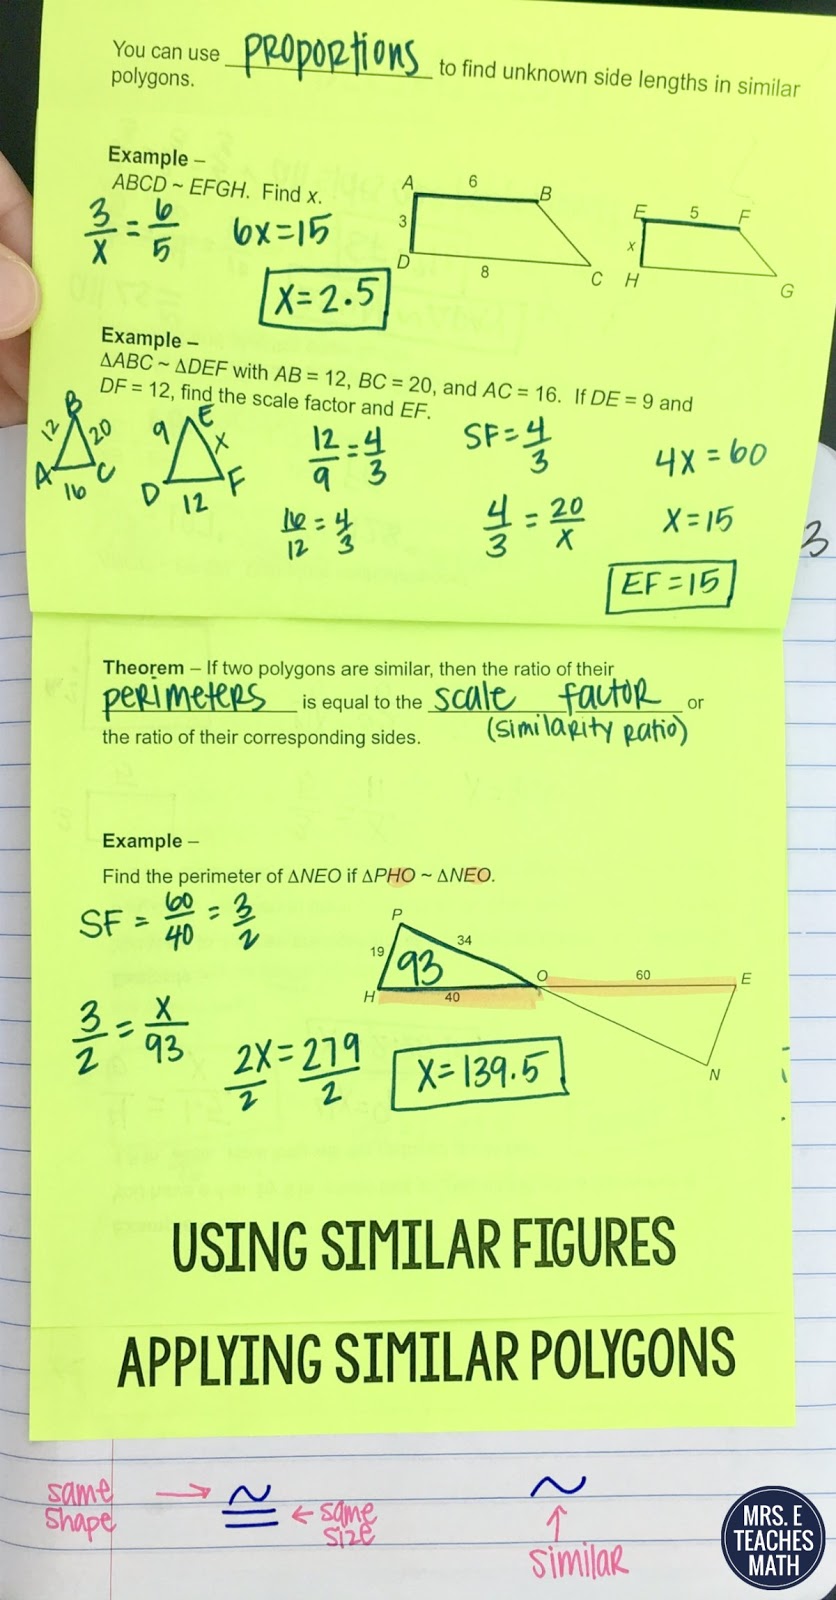 You can use proportions to find unknown side lengths in similar
polygons.
Example –
ABCD ~ EFGH. Find x.
3/x = 6/5
6x=15
x=2.5
A 6 B
3
D 8 C
E 5 F
x
H G
Example –
ΔABC ~ ΔDEF with AB = 12, BC = 20, and AC = 16. If DE = 9 and
DF = 12, find the scale factor and EF.
B
12 20
A C
16
E
9 x
D F
12
12/9 = 4/3
16/12 = 4/3
SF = 4/3
4/3 = 20/x
4x = 60
x = 15
EF = 15
3
Theorem – If two polygons are similar, then the ratio of their
perimeters is equal to the scale factor or
(similarity ratio)
the ratio of their corresponding sides.
Example –
Find the perimeter of ΔNEO if ΔPHO ~ ΔNEO.
SF = 60/40 = 3/2
3/2 = x/93
2x/2 = 279/2
x=139.5
P
19 93 34
H 40 O 60 E
N
USING SIMILAR FIGURES
APPLYING SIMILAR POLYGONS
same
shape
→ ≅ ← same
size
~
↑
similar
MRS. E
TEACHES
MATH